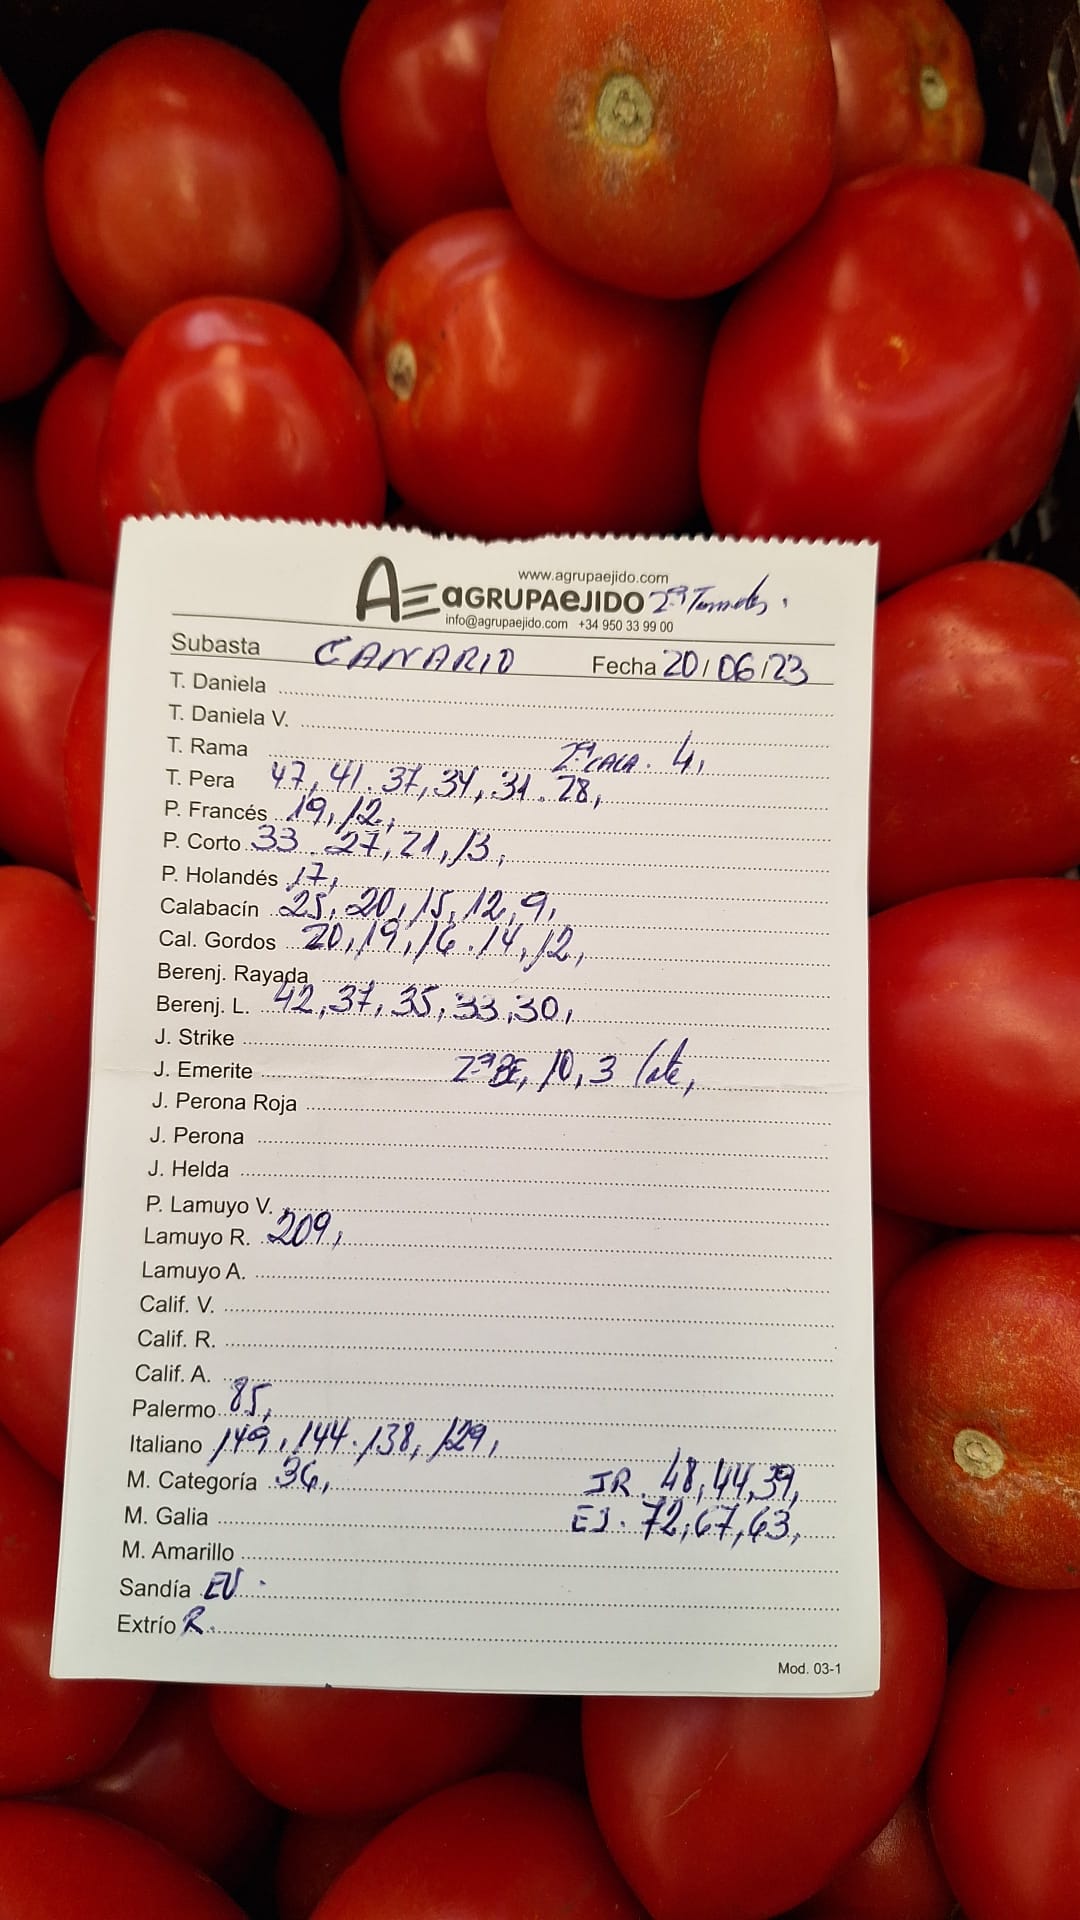 www.agrupaejido.com
AE aGRUPAeJIDO 2ª
info@agrupaejido.com +34 950 33 99 00
Subasta CANARIO Fecha 20/06/23
T. Daniela
T. Daniela V.
T. Rama 2ª CALA. 4,
T. Pera 47, 41. 37, 34, 31. 28,
P. Francés 19, 12,
P. Corto 33. 27, 21, 13,
P. Holandés 17,
Calabacín 25, 20, 15, 12, 9,
Cal. Gordos 20, 19, 16. 14, 12,
Berenj. Rayada
Berenj. L. 42, 37, 35, 33, 30,
J. Strike
J. Emerite 2ª BE, 10, 3
J. Perona Roja
J. Perona
J. Helda
P. Lamuyo V.
Lamuyo R. 209,
Lamuyo A.
Calif. V.
Calif. R.
Calif. A.
Palermo 85,
Italiano 149, 144. 138, 129,
M. Categoría 36, JR. 48, 44, 39,
M. Galia EJ. 72, 67, 63,
M. Amarillo
Sandía EU.
Extrío R.
Mod. 03-1